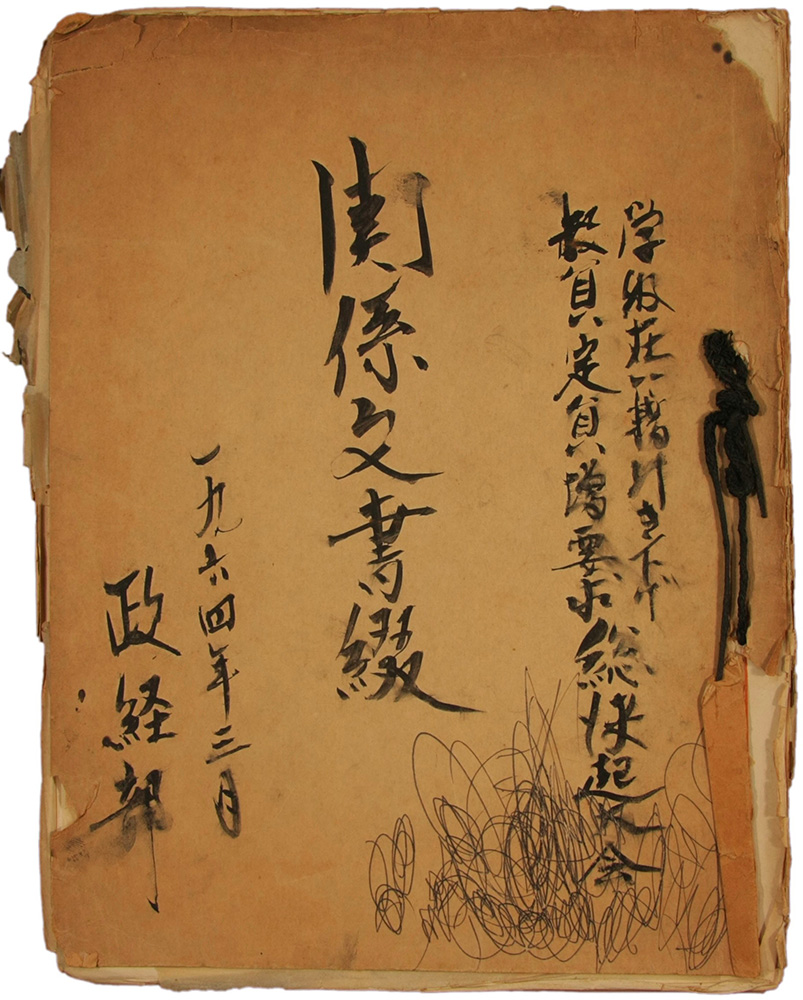 学級在籍引き下げ
教員定員増要求総決起大会
関係文書綴
一九六四年三月
政経部